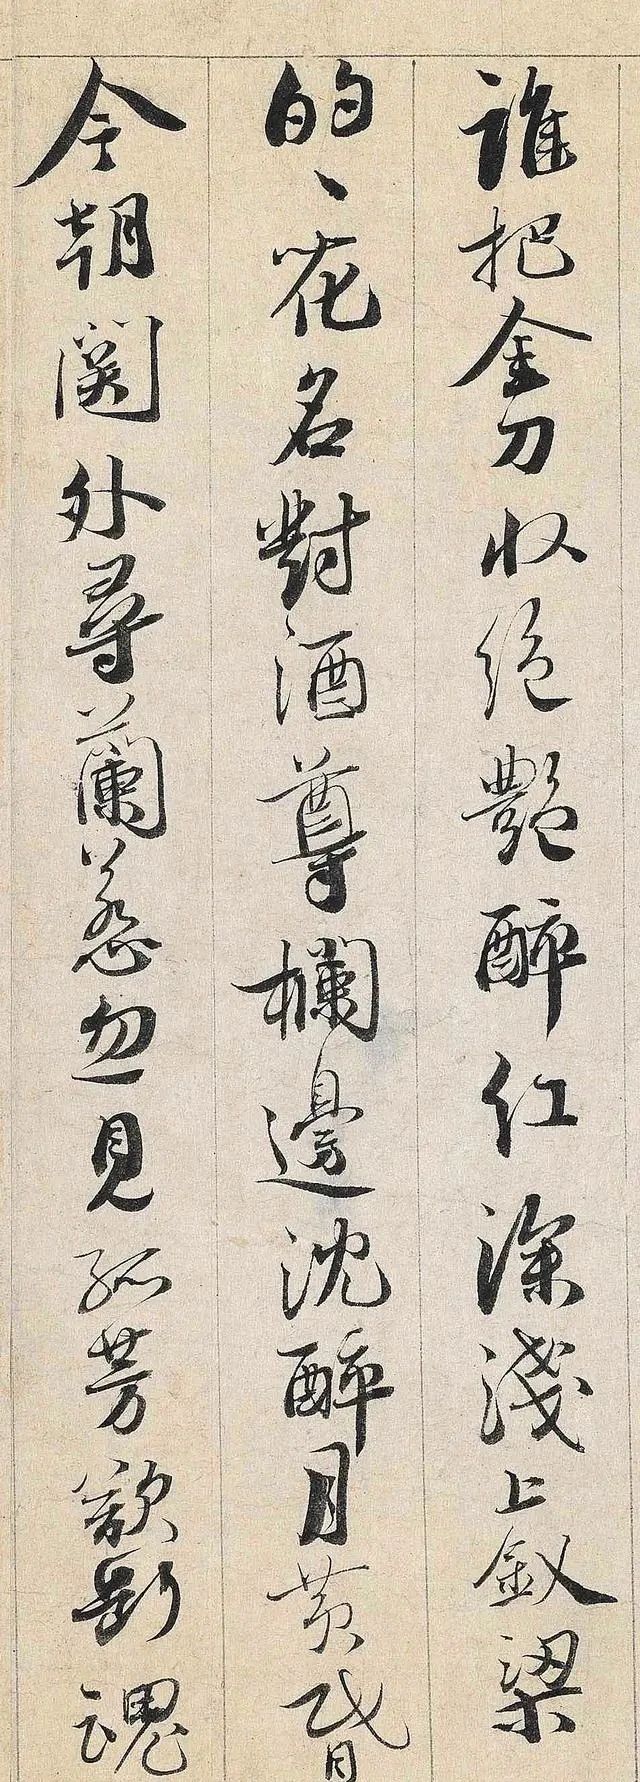 誰把金刀收絕艷醉紅深淺上釵梁
的〻花名對酒尊欄邊沈醉月黃昏
今朝關外尋蘭蕙忽見孤芳欲斷魂